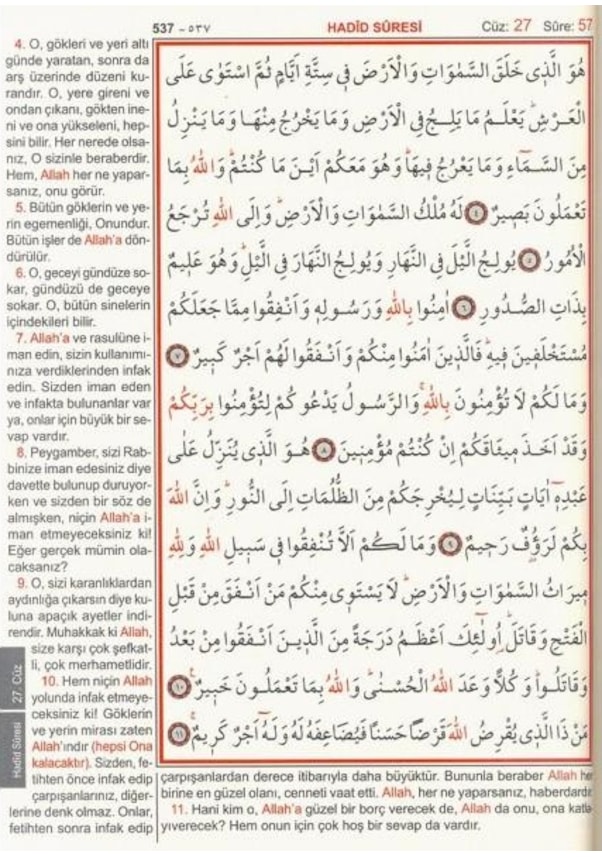 537 - ٥٣٧
HADÎD SÛRESİ
Cüz: 27 Sûre: 57
4. O, gökleri ve yeri altı
günde yaratan, sonra da
arş üzerinde düzeni ku-
randır. O, yere gireni ve
ondan çıkanı, gökten ine-
ni ve ona yükseleni, hep-
sini bilir. Her nerede olsa-
nız, O sizinle beraberdir.
Hem, Allah her ne yapar-
sanız, onu görür.
5. Bütün göklerin ve ye-
rin egemenliği, Onundur.
Bütün işler de Allah'a dön-
dürülür.
6. O, geceyi gündüze so-
kar, gündüzü de geceye
sokar. O, bütün sinelerin
içindekileri bilir.
7. Allah'a ve rasulüne i-
man edin, sizin kullanımı-
nıza verdiklerinden infak
edin. Sizden iman eden
ve infakta bulunanlar var
ya, onlar için büyük bir se-
vap vardır.
8. Peygamber, sizi Rab-
binize iman edesiniz diye
davette bulunup duruyor-
ken ve sizden bir söz de
almışken, niçin Allah'a i-
man etmeyeceksiniz ki!
Eğer gerçek mümin ola-
caksanız?
9. O, sizi karanlıklardan
aydınlığa çıkarsın diye ku-
luna apaçık ayetler indi-
rendir. Muhakkak ki Allah,
size karşı çok şefkat-
li, çok merhametlidir.
10. Hem niçin Allah
yolunda infak etmeye-
ceksiniz ki! Göklerin
ve yerin mirası zaten
Allah'ındır (hepsi Ona
kalacaktır). Sizden, fe-
tihten önce infak edip
çarpışanlarınız, diğer-
lerine denk olmaz. Onlar,
fetihten sonra infak edip
هُوَ الَّذ۪ي خَلَقَ السَّمٰوَاتِ وَالْاَرْضَ ف۪ي سِتَّةِ اَيَّامٍ ثُمَّ اسْتَوٰى عَلَى
الْعَرْشِۜ يَعْلَمُ مَا يَلِجُ فِي الْاَرْضِ وَمَا يَخْرُجُ مِنْهَا وَمَا يَنْزِلُ
مِنَ السَّمَٓاءِ وَمَا يَعْرُجُ ف۪يهَاۜ وَهُوَ مَعَكُمْ اَيْنَ مَا كُنْتُمْۜ وَاللّٰهُ بِمَا
تَعْمَلُونَ بَص۪يرٌ ﴿٤﴾ لَهُ مُلْكُ السَّمٰوَاتِ وَالْاَرْضِۜ وَاِلَى اللّٰهِ تُرْجَعُ
الْاُمُورُ ﴿٥﴾ يُولِجُ الَّيْلَ فِي النَّهَارِ وَيُولِجُ النَّهَارَ فِي الَّيْلِۜ وَهُوَ عَل۪يمٌ
بِذَاتِ الصُّدُورِ ﴿٦﴾ اٰمِنُوا بِاللّٰهِ وَرَسُولِه۪ وَاَنْفِقُوا مِمَّا جَعَلَكُمْ
مُسْتَخْلَف۪ينَ ف۪يهِۜ فَالَّذ۪ينَ اٰمَنُوا مِنْكُمْ وَاَنْفَقُوا لَهُمْ اَجْرٌ كَب۪يرٌ ﴿٧﴾
وَمَا لَكُمْ لَا تُؤْمِنُونَ بِاللّٰهِۚ وَالرَّسُولُ يَدْعُوكُمْ لِتُؤْمِنُوا بِرَبِّكُمْ
وَقَدْ اَخَذَ م۪يثَاقَكُمْ اِنْ كُنْتُمْ مُؤْمِن۪ينَ ﴿٨﴾ هُوَ الَّذ۪ي يُنَزِّلُ عَلٰى
عَبْدِه۪ٓ اٰيَاتٍ بَيِّنَاتٍ لِيُخْرِجَكُمْ مِنَ الظُّلُمَاتِ اِلَى النُّورِۜ وَاِنَّ اللّٰهَ
بِكُمْ لَرَؤُ۫فٌ رَح۪يمٌ ﴿٩﴾ وَمَا لَكُمْ اَلَّا تُنْفِقُوا ف۪ي سَب۪يلِ اللّٰهِ وَلِلّٰهِ
م۪يرَاثُ السَّمٰوَاتِ وَالْاَرْضِۜ لَا يَسْتَو۪ي مِنْكُمْ مَنْ اَنْفَقَ مِنْ قَبْلِ
الْفَتْحِ وَقَاتَلَۜ اُو۬لٰٓئِكَ اَعْظَمُ دَرَجَةً مِنَ الَّذ۪ينَ اَنْفَقُوا مِنْ بَعْدُ
وَقَاتَلُواۜ وَكُلًّا وَعَدَ اللّٰهُ الْحُسْنٰىۜ وَاللّٰهُ بِمَا تَعْمَلُونَ خَب۪يرٌ ﴿١٠﴾
مَنْ ذَا الَّذ۪ي يُقْرِضُ اللّٰهَ قَرْضًا حَسَنًا فَيُضَاعِفَهُ لَهُ وَلَهُٓ اَجْرٌ كَر۪يمٌ ﴿١١﴾
çarpışanlardan derece itibarıyla daha büyüktür. Bununla beraber Allah her
birine en güzel olanı, cenneti vaat etti. Allah, her ne yaparsanız, haberdardır
11. Hani kim o, Allah'a güzel bir borç verecek de, Allah da onu, ona katla
yıverecek? Hem onun için çok hoş bir sevap da vardır.
27. Cüz
Hadîd Sûresi